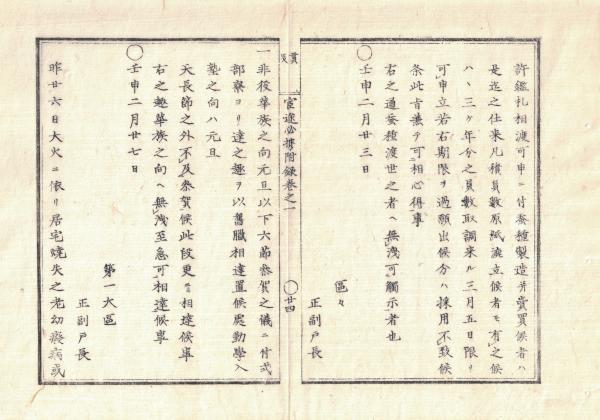 許鑑札相渡可申ニ付蚕種製造并賣買候者ハ
是迄之仕来凡積員數原紙漉立候者モ有之候
ハヽ三ケ年分之員數取調来ル三月五日限リ
可申立若右期限ヲ過願出候分ハ採用不致候
条此旨兼テ可相心得事
右之通蚕種渡世之者ヘ無洩可觸示者也
壬申二月廿三日
區々
正副戸長
官途必携附録巻之一
廿四
一非役華族之向元旦以下六節参賀之儀ニ付式
部寮ヨリ達之趣ヲ以舊臘相達置候處勤學入
塾之向ハ元旦
天長節之外不及参賀候此段更ニ相達候事
右之趣華族之向ヘ無洩至急可相達候事
壬申二月廿七日
第一大區
正副戸長
昨廿六日大火ニ依リ居宅燒失之老幼癈病或